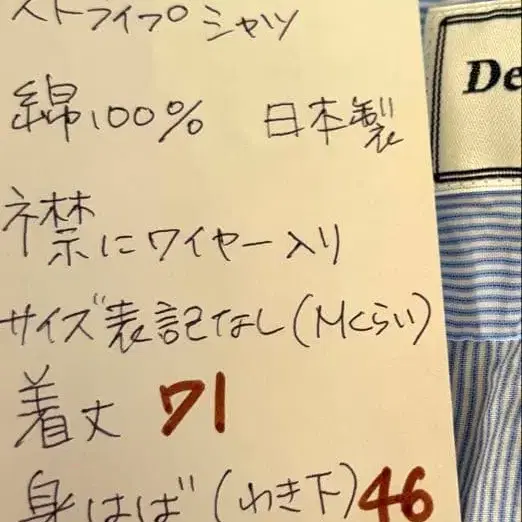 ストライプシャツ
綿100% 日本製
襟にワイヤー入り
サイズ表記なし(Mくらい)
着丈 71
身はば(わき下)46
De